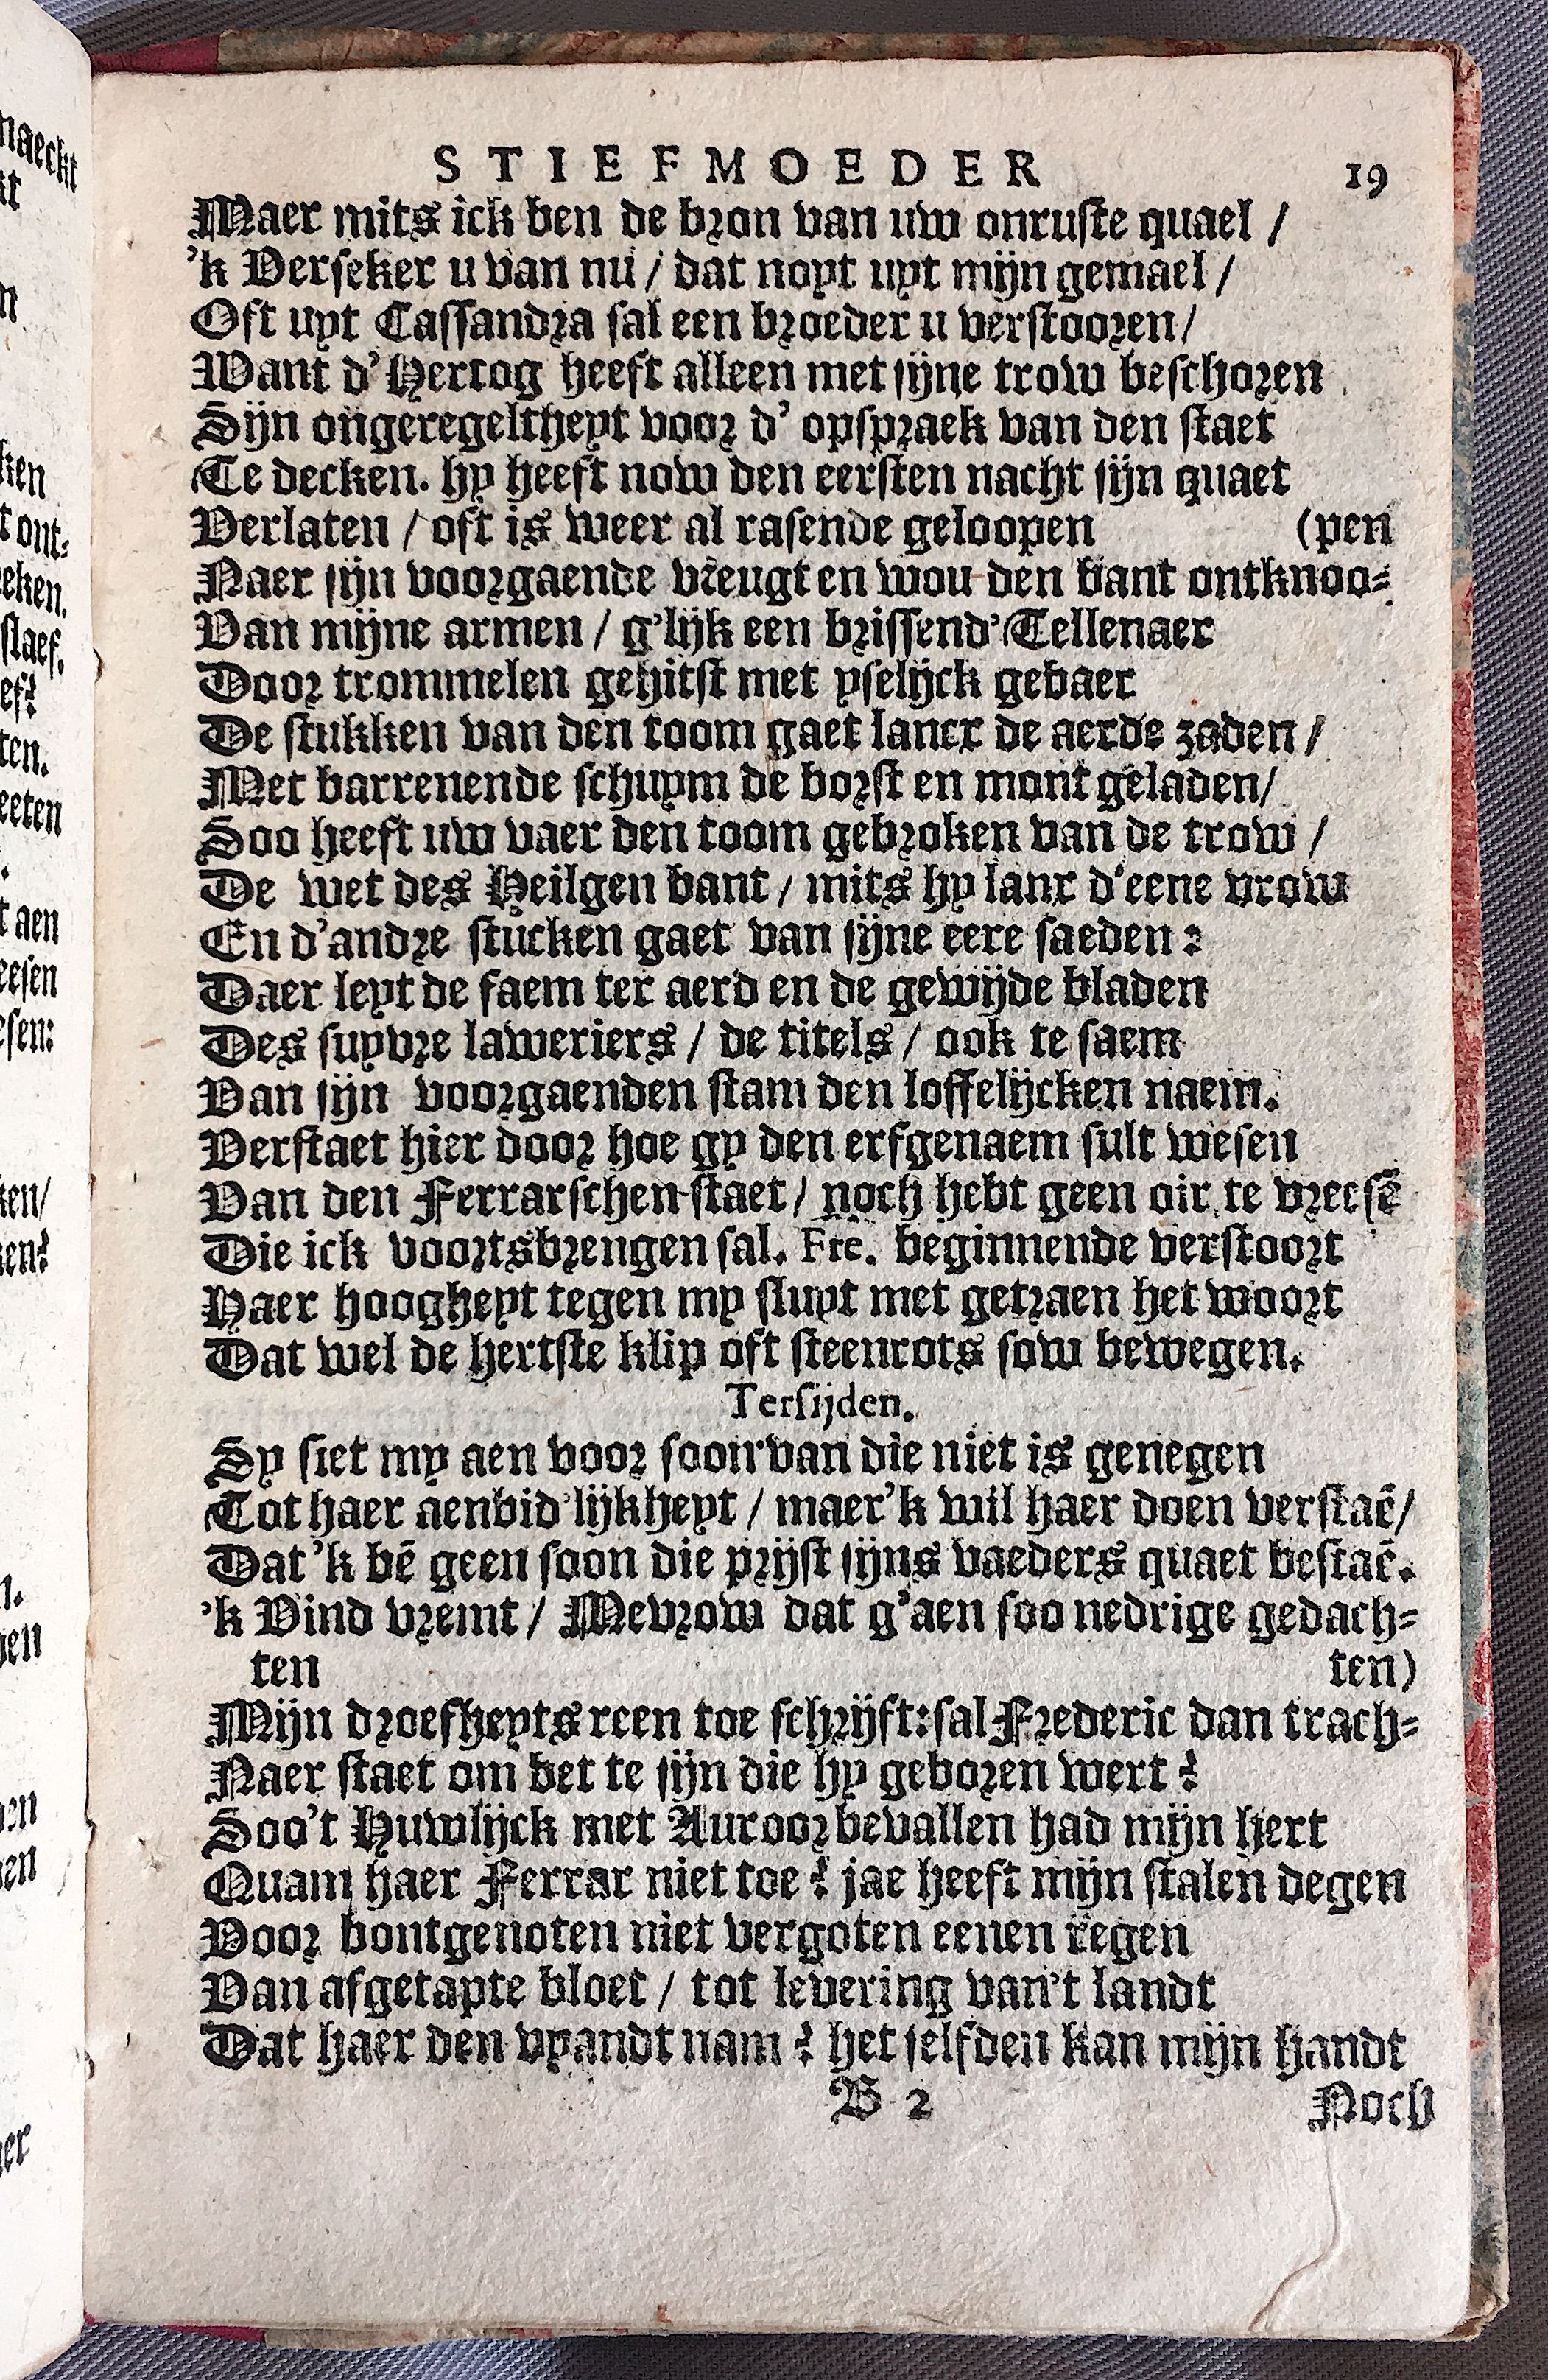 STIEFMOEDER 19
Maer mits ick ben de bron van uw onruste quael /
'k Verseker u van nu / dat noyt uyt mijn gemael /
Oft uyt Cassandra sal een broeder u verstooren /
Want d'Hertog heeft alleen met sijne trow beschoren
Sijn ongeregeltheyt voor d' opspraek van den staet
Te decken. hy heeft now den eersten nacht sijn quaet
Verlaten / oft is weer al rasende geloopen (pen
Naer sijn voorgaende vreugt en wou den bant ontknoo-
Van mijne armen / g'lijk een brissend' Tellenaer
Door trommelen gehitst met yselijck gebaer
De stukken van den toom gaet lancx de aerde zaden /
Met barrenende schuym de borst en mont geladen /
Soo heeft uw vaer den toom gebroken van de trow /
De wet des Heilgen bant / mits hy lanx d'eene vrow
En d'andre stucken gaet van sijne eere saeden :
Daer leyt de faem ter aerd en de gewijde bladen
Des suyvre laweriers / de titels / ook te saem
Van sijn voorgaenden stam den loffelijcken naem.
Verstaet hier door hoe gy den erfgenaem sult wesen
Van den Ferrarschen staet / noch hebt geen oir te vreesē
Die ick voortsbrengen sal. Fre. beginnende verstoort
Haer doogheyt tegen my sluyt met getraen het woort
Dat wel de hertste klip oft steenrots sow bewegen.
Tersijden.
Sy siet my aen voor soon van die niet is genegen
Tot haer aenbid'lijkheyt / maer 'k wil haer doen verstaē /
Dat 'k bē geen soon die prijst sijns vaeders quaet bestaē.
'k Vind vremt / Mevrow dat g'aen soo nedrige gedach-
ten ten)
Mijn droefheyts reen toe schrijft: sal Frederic dan trach-
Naer staet om bet te sijn die hy geboren wert ?
Soo't Huwlijck met Auroor bevallen had mijn hert
Quam haer Ferrar niet toe ? jae heeft mijn stalen degen
Voor bontgenoten niet vergoten eenen regen
Van afgetapte bloet / tot levering van't landt
Dat haer den vyandt nam ? het selfden kan mijn handt
B 2 Noch